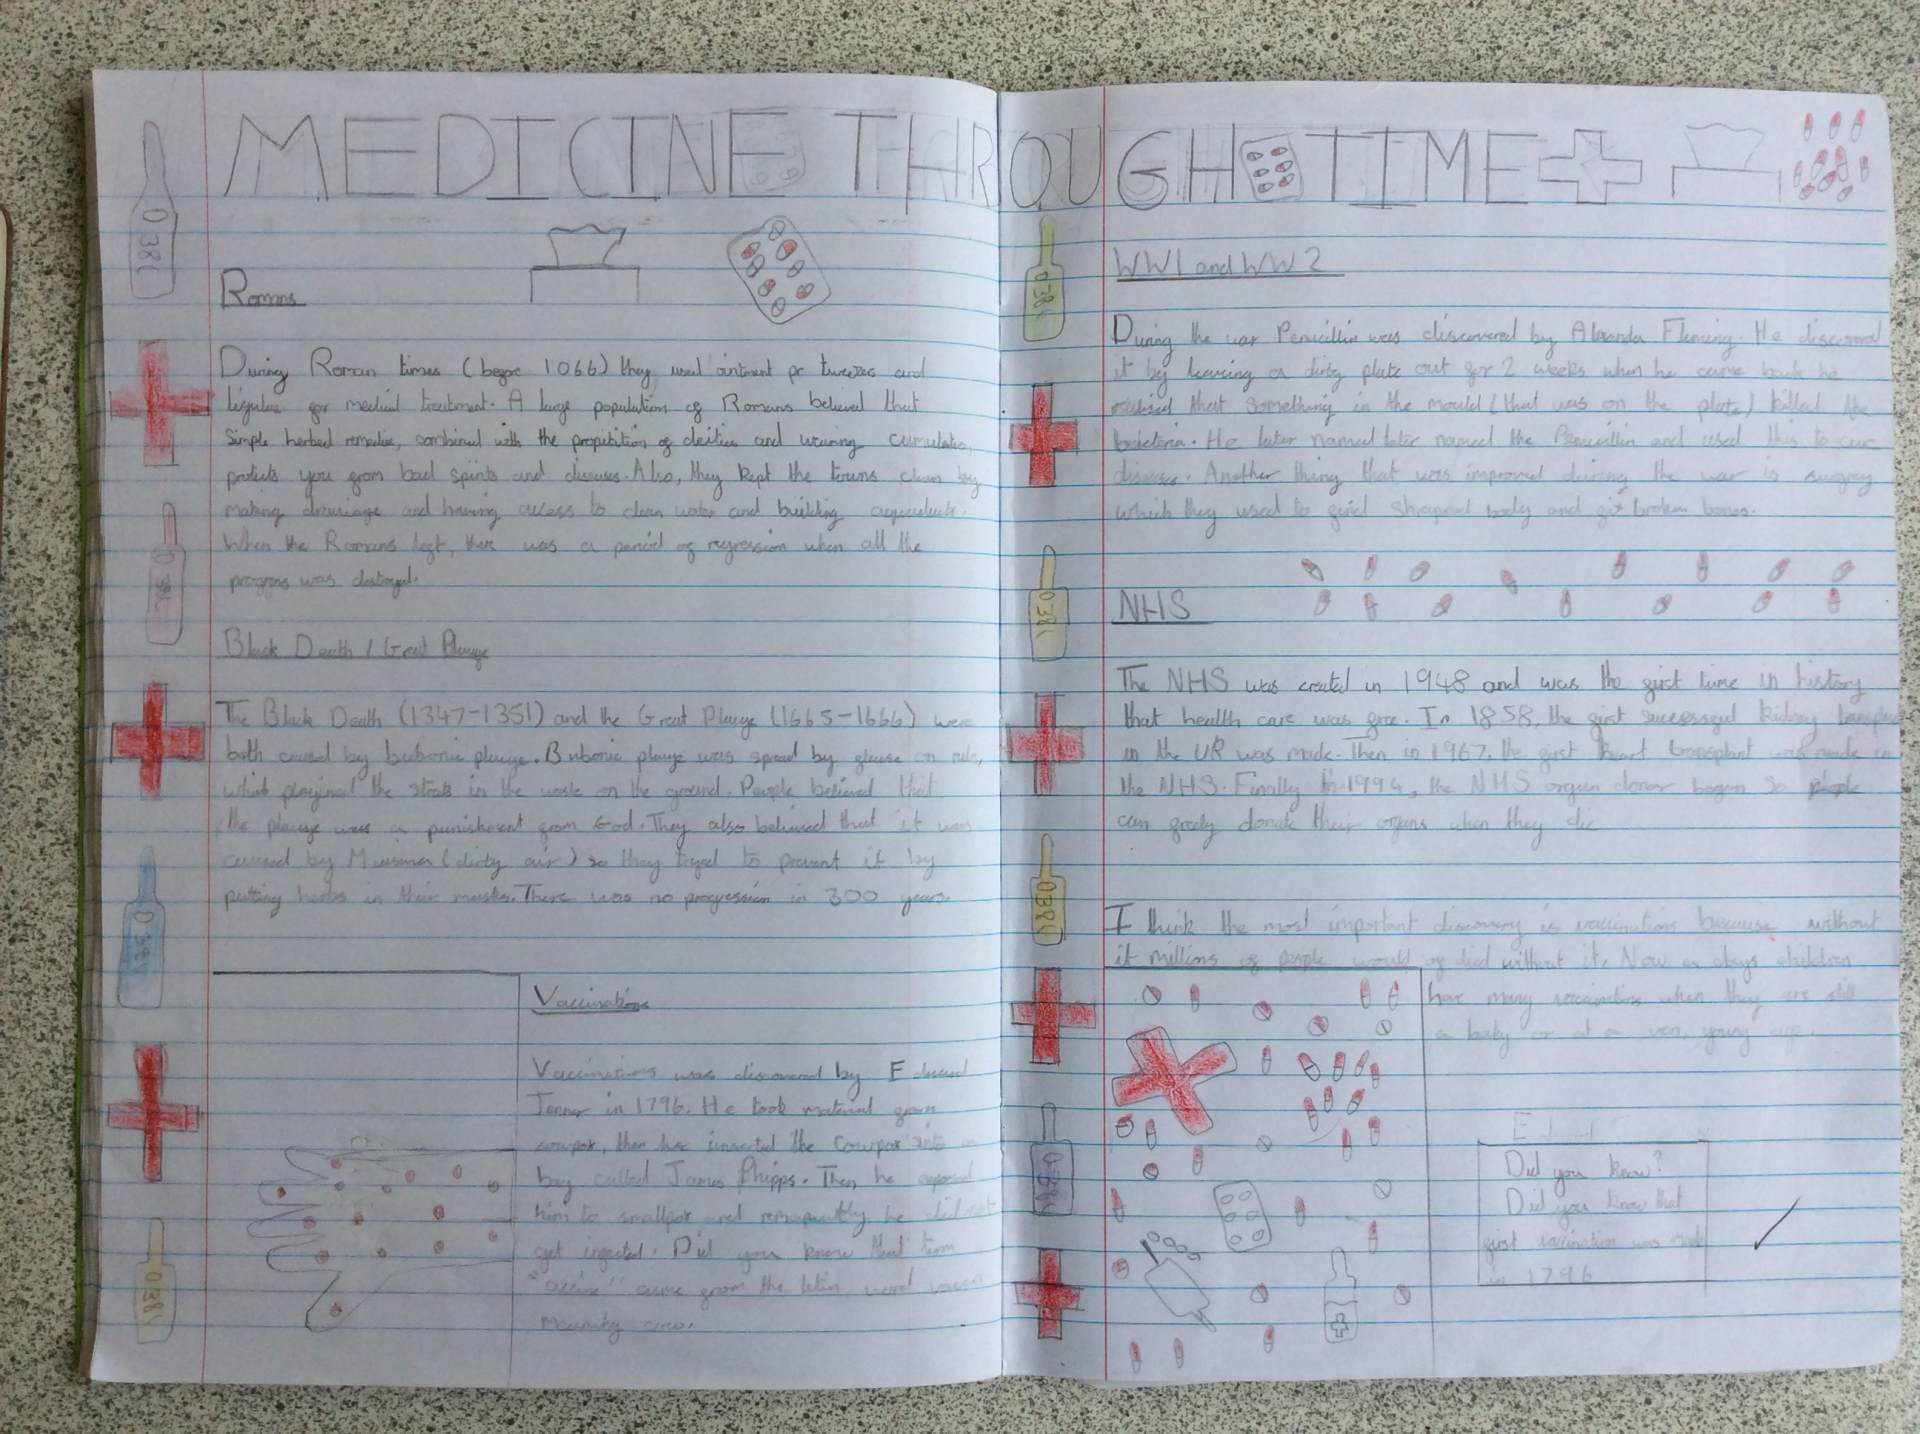 MEDICINE THROUGH TIME
Romans
During Roman times (before 1066) they used ointment or tweezers and
ligulae for medical treatment. A large population of Romans believed that
simple herbal remedies, combined with the propitiation of deities and wearing
protects you from bad spirits and diseases. Also, they kept the towns clean by
making drainage and having access to clean water and building aqueducts.
When the Romans left, there was a period of regression when all the
progress was destroyed.
Black Death / Great Plauge
The Black Death (1347-1351) and the Great Plauge (1665-1666) were
both caused by bubonic plauge. Bubonic plauge was spread by on rats,
which the in the waste on the ground. People believed that
the plauge was a punishment from God. They also believed that it was
caused by (dirty air) so they tryed to prevent it by
putting herbs in their masks. There was no progression in 300 years.
Vaccinations
was discovered by Edward
Jenner in 1796. He took material from
cowpox, then he inserted the cowpox into a
boy called James Phipps. Then he exposed
him to smallpox and he did not
get infected. Did you know that term
came from the latin word
meaning cow.
WW1 and WW2
During the war was discovered by Fleming. He discovered
it by leaving a dirty plate out for 2 weeks when he came back he
realised that something in the mould (that was on the plate) killed the
He later named later named the and used this to cure
Another thing that was improved during the war is
which they used to find body and fix broken bones.
NHS
The NHS was created in 1948 and was the first time in history
that health care was free. In 1858, the first successful kidney
in the UK was made. Then in 1967, the first heart transplant was made in
the NHS. Finally in 1994, the NHS organ donor began so people
can freely donate their organs when they die
I think the most important discovery is vaccinations because without
it millions of people would of died without it. Now a days children
have many vaccinations when they are still
a baby or at a very young age.
Did you know?
Did you know that
first vaccination was made
in 1796